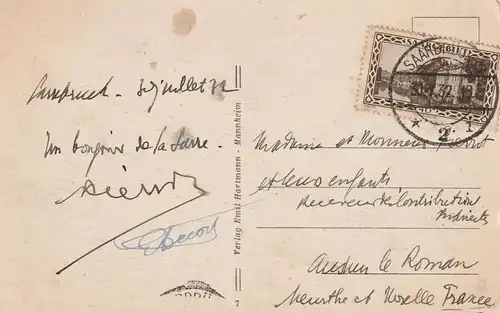 Sarrebruck - 30 juillet 32
Un bonjour de la Sarre.
Verlag Emil Hartmann - Mannheim
7
SAARGEBIET
30.7.32
* 2 1
Madame et Monsieur
et leurs enfants
Receveur des Contributions
Indirectes
Audun le Roman
Meurthe et Moselle France